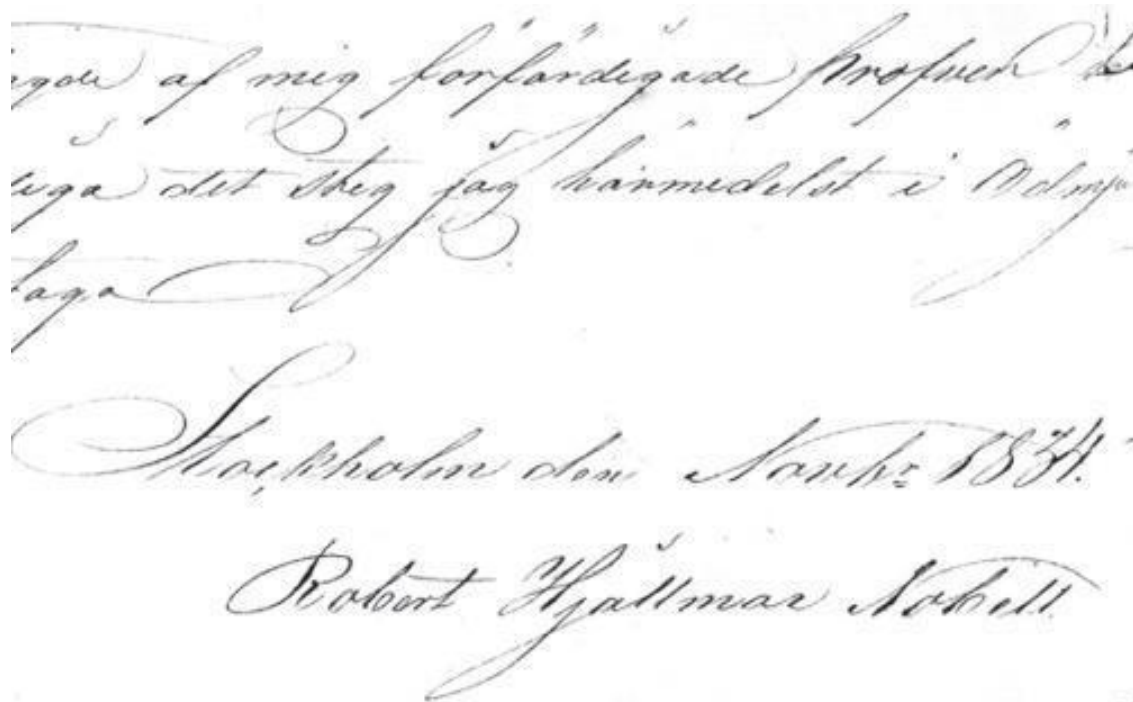 af mig förfärdigade profven
det steg jag härmedelst i
taga
Stockholm den Novbr 1834.
Robert Hjallmar Nobell